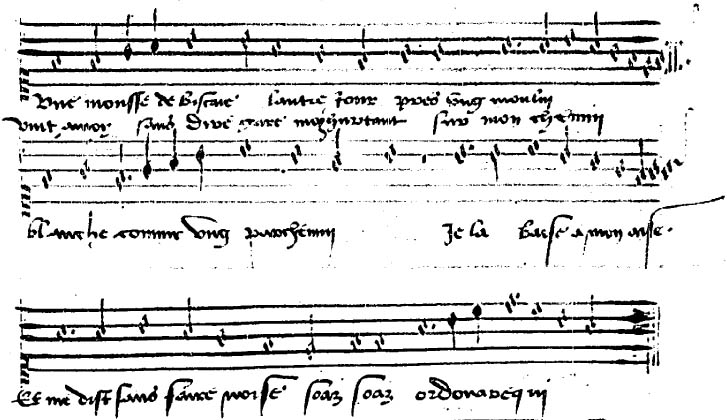 Une mousse de Biscaie lautre jour pres ung moulin
Vint a moy sans dire gare moy hurtant sur mon chemin
blanche comme ung parchemin Je la baise a mon aise.
Et me dist sans faire noise soaz soaz ordonarequi